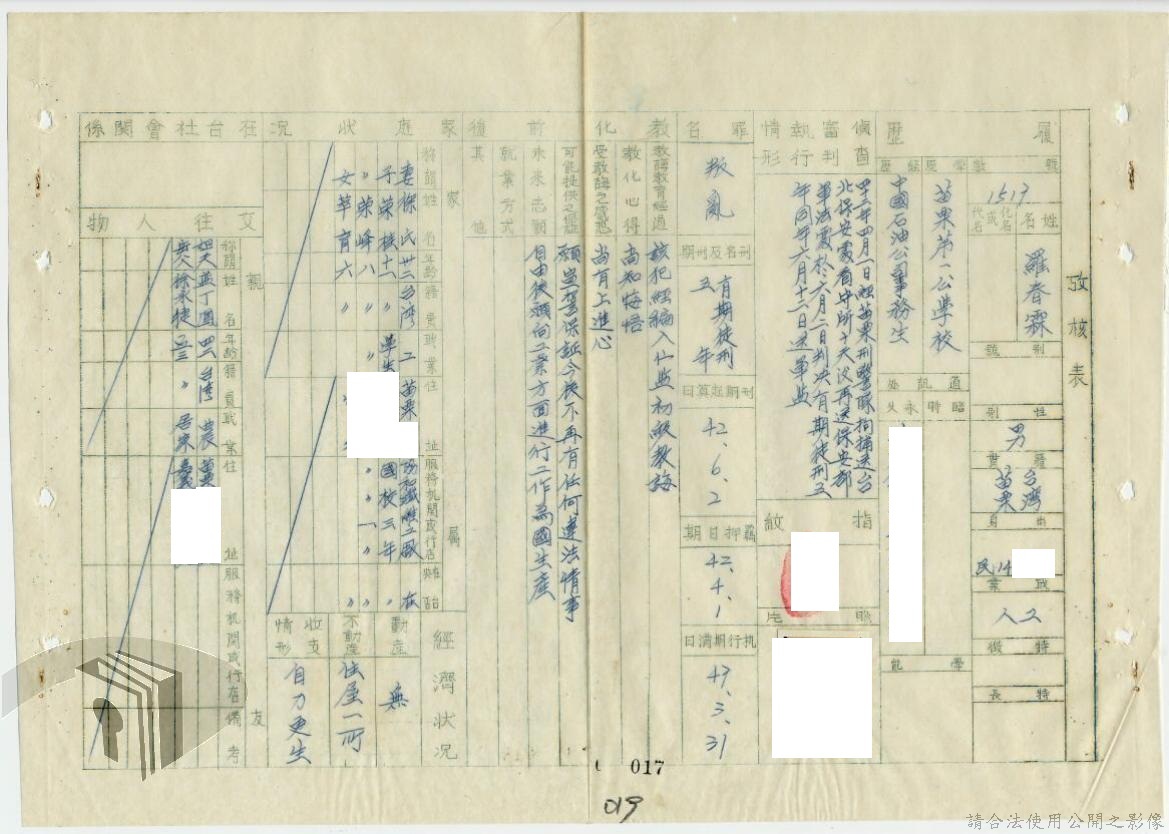 攷核表
履歷
號數
1517
姓名
化名或代名
羅春霖
別號
性別
男
籍貫
台灣苗栗
出身
民14
職業
工人
特徵
特長
學歷
苗栗第一公學校
經歷
中國石油公司事務生
通訊處
臨時
永久
學能
偵審執情
查判行形
四十二年四月一日經苗栗刑警隊拘捕送台
北保安處看守所十天後再送保安部
軍法處於六月二日判決有期徒刑五
年同年六月十二日送軍監
指紋
照片
罪名
叛亂
刑名及刑期
有期徒刑
五年
刑期起算日
42.6.2
羈押日期
42.4.1
執行期滿日
47.3.31
教化前後
教誨教育經過
該犯經編入仁監初級教誨
教化心得
尚知悔悟
受教誨之感想
尚有上進心
可能提供之保證
願宣誓保証今後不再有任何違法情事
未來志願
自由後願向工業方面進行工作為國生產
就業方式
其他
家庭狀況
家屬
稱謂
姓名
年齡
籍貫
職業
住址
服務机關或行店
妻 徐氏 卅二 台灣 工 苗栗
子 榮機 十二 〃 學生 國校三年
〃 榮峰 八 〃
女 苹育 六 〃
經濟狀況
動產
無
不動產
住屋一所
收支情形
自力更生
在台社會關係
交往人物
親友
稱謂
姓名
年齡
籍貫
職業
住址
服務机關或行店
備考
台灣 農
017
019
請合法使用公開之影像